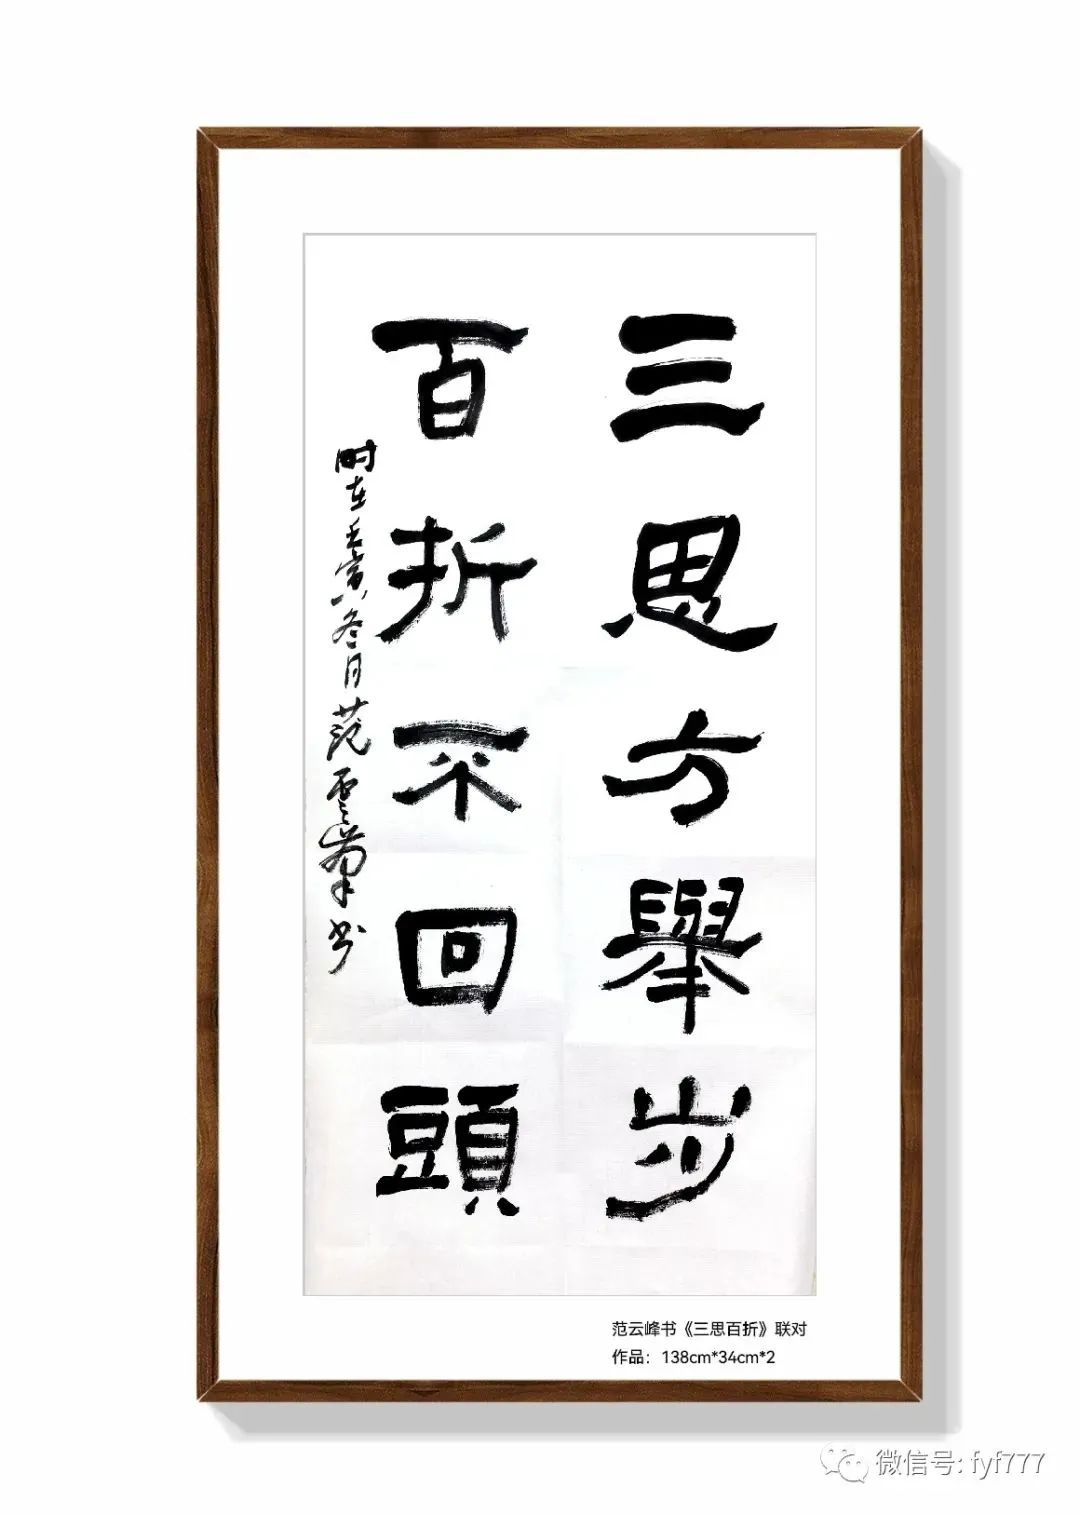 三思方舉步
百折不回頭
时在壬寅冬月范雲峯书
范云峰书《三思百折》联对
作品：138cm*34cm*2
微信号: fyf777